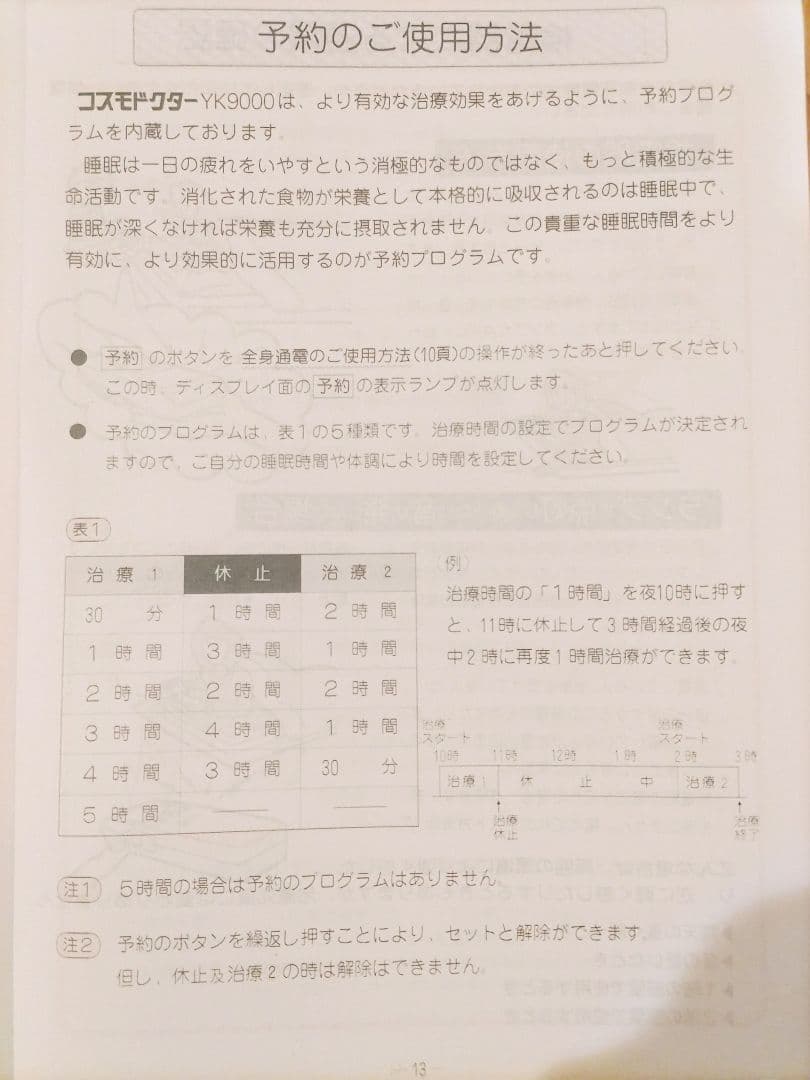 予約のご使用方法
コスモドクターYK9000は、より有効な治療効果をあげるように、予約プログ
ラムを内蔵しております。
睡眠は一日の疲れをいやすという消極的なものではなく、もっと積極的な生
命活動です。消化された食物が栄養として本格的に吸収されるのは睡眠中で、
睡眠が深くなければ栄養も充分に摂取されません。この貴重な睡眠時間をより
有効に、より効果的に活用するのが予約プログラムです。
● 予約 のボタンを 全身通電のご使用方法(10頁)の操作が終ったあと押してください。
この時、ディスプレイ面の 予約 の表示ランプが点灯します。
● 予約のプログラムは、表1の5種類です。治療時間の設定でプログラムが決定され
ますので、ご自分の睡眠時間や体調により時間を設定してください。
表1
治療1 休止 治療2
30分 1時間 2時間
1時間 3時間 1時間
2時間 2時間 2時間
3時間 4時間 1時間
4時間 3時間 30分
5時間 ―― ――
(例)
治療時間の「1時間」を夜10時に押す
と、11時に休止して3時間経過後の夜
中2時に再度1時間治療ができます。
治療 治療
スタート スタート
10時 11時 12時 1時 2時 3時
治療1 休 止 中 治療2
治療 治療
休止 終了
注1 5時間の場合は予約のプログラムはありません。
注2 予約のボタンを繰返し押すことにより、セットと解除ができます。
但し、休止及治療2の時は解除はできません。
―13―